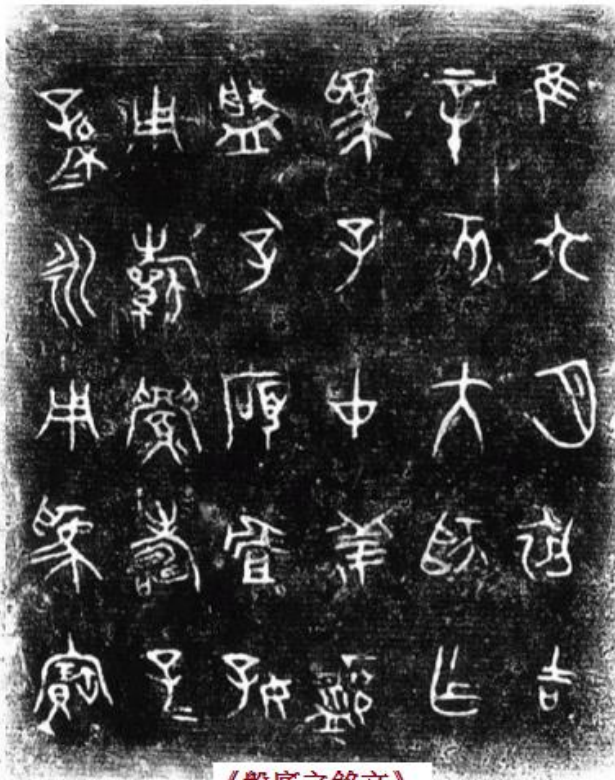 隹六月初吉
辛亥大師乍
爲子中姜沬
盤孔碩且好
用祈眉壽子=
孫=永用爲寶
《盤底之銘文》